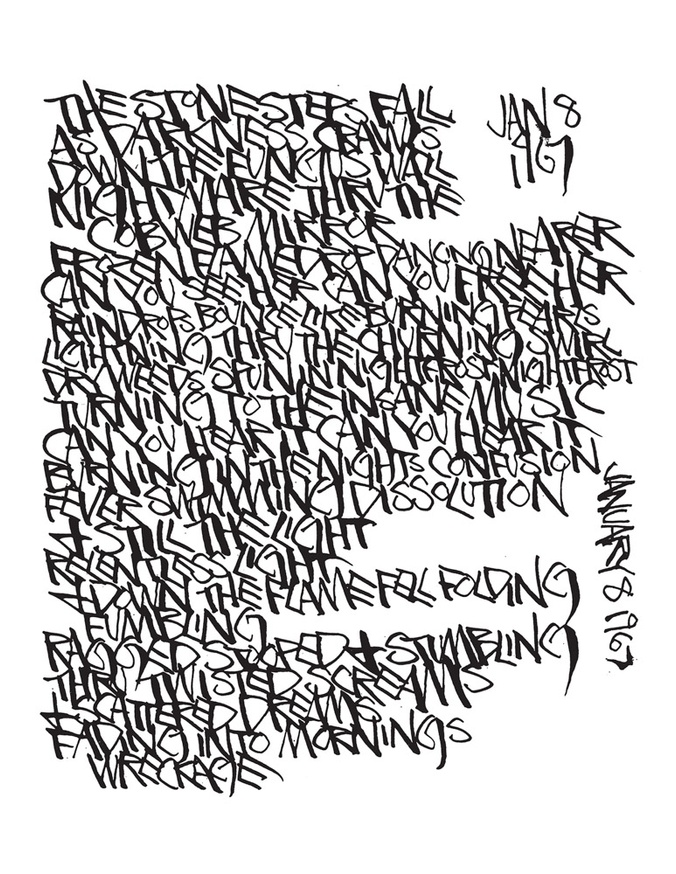 THE STONE STEPS FALL
AS DARKNESS CRAWLS
DOWN THE FUNGUS WALL
NIGHTMARE THRU THE
COBWEB MIRROR
FROZEN FLAMEDROP DANCING NEARER
CAN YOU SEE HER CAN YOU FREE HER
RAINDROPS BOUNCE LIKE BURNING PEARLS
LIGHTNING THRU THE CHURNING SWIRL
DRY WEEDS SPUN IN NIGHTFROST NIGHTFROST
TURNING TO THE INSANE MUSIC
CAN YOU HEAR IT CAN YOU HEAR IT
BURNING IN THE NIGHTS CONFUSION
FEVER SWIMMING DISSOLUTION
+ STILL THE LIGHT
RELENTLESS LIGHT
+ DOWN THE FLAME FELL FOLDING
FUMBLING
RAGGED STOOPED + STUMBLING
THRU TWISTED SCREAMS
+ SCATTERED DREAMS
FADING INTO MORNINGS
WRECKAGE
JAN 8
1967
JANUARY 8 1967